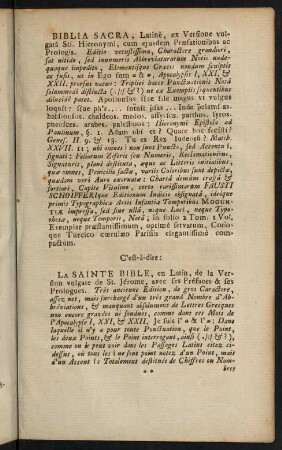 BIBLIA SACRA, Latinè, ex Versione vulgatâ Sti. Hieronymi, cum ejusdem Præfationibus ac
Prologis. Editio vetustissima, Charactere grandiore,
sat nitido, sed innumeris Abbreviaturarum Notis undequoque impedito,
ac fusis, ut in Ego sum
XXII, prorsus notus: Triplici hucce Punctuationis Notâ
solummodò distincta (.|:|&?) ut ex Exemplis sequentibus
dilucidè patet. Apollonius sive ille magus ut vulgus
loquit: sive ph's... intrās psas... Inde
babilonios. chaldeos. medos. assyrios. parthos. syros.
phœnices. arabes. palestinos: Hieronymi Epistola ad
Paulinum, §. 1. Adam ubi et? Quare hoc fecisti?
Genes. III 9. & 13. Tu es Rex Judeorū? Matth.
XXVII. 11; ubi omnes i non sunt Puncto, sed Accentu í,
signati: Foliorum Zifris seu Numeris, Reclamationibus,
Signaturis, planè destituta, atque ac Litteris initialibus,
quæ omnes, Penicillo factæ, variis Coloribus sunt depictæ,
quædam verò Auro exornatæ: Chartâ demùm crassâ &
fortiori, Capite Vitulino, certo rarissimarum FAUSTI
SCHOIFFERIque Editionum Indicio designatâ, ideoque
primis Typographicæ Artis Infantiæ Temporibus MOGUN-
TIÆ impressa, sed sine ullâ, neque Loci, neque Typo-
thetæ, neque Temporis, Notâ; in folio 2 Tom. 1 Vol.
Exemplar præstantissimum, optimè servatum, Corio-
que Turcico cæruleo Parisiis elegantissimè com-
pactum.
C'est-à-dire:
LA SAINTE BIBLE, en Latin, de la Ver-
sion vulgate de St. Jérome, avec ses Préfaces & ses
Prologues. Très ancienne Edition, de gros Caractère,
assez net, mais surchargé d'un très grand Nombre d'Ab-
bréviations, & manquant absolument de Lettres Grecques
non encore gravées ni fondues, comme dans ces Mots de
l'Apocalypse I, XXI, & XXII, Je suis l'α & l'ω: Dans
laquelle il n'y a pour toute Punctuation, que le Point,
les deux Points, & le Point interrogant, ainsi (.|:|& ?),
comme on le peut voir dans les Passages Latins citez ci-
dessus, où tous les i ne sont point notez d'un Point, mais
d'un Accent í: Totalement destituée de Chiffres ou Nom-
* *
bres